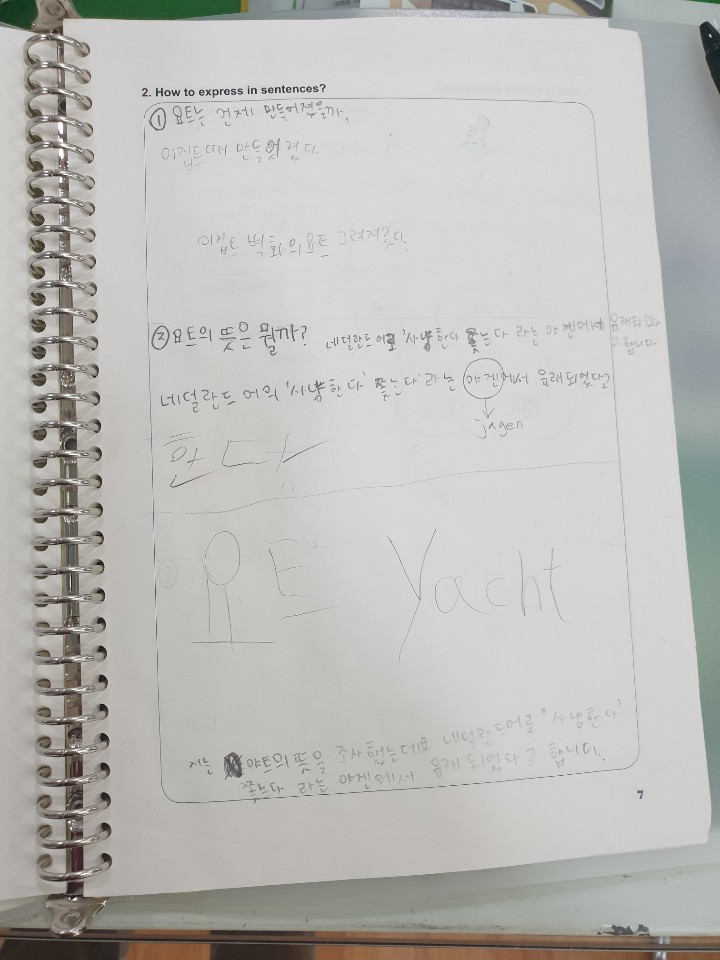 2. How to express in sentences?
① 요트는 언제 만들어졌을까.
이집트때 만들어졌다.
이집트 벽화의 요트 그려져있다.
② 요트의 뜻은 뭘까?
네덜란드어로 '사냥한다 쫓는다 라는 야겐에서 유래되었다
고 합니다.
네덜란드 어의 '사냥한다' 쫓는다' 라는 야겐에서 유래되었다고
jagen
한다
요트 Yacht
저는 야트의 뜻을 조사했는데 네덜란드어로 "사냥한다'
쫓는다 라는 야겐에서 유래되었다고 합니다.
7